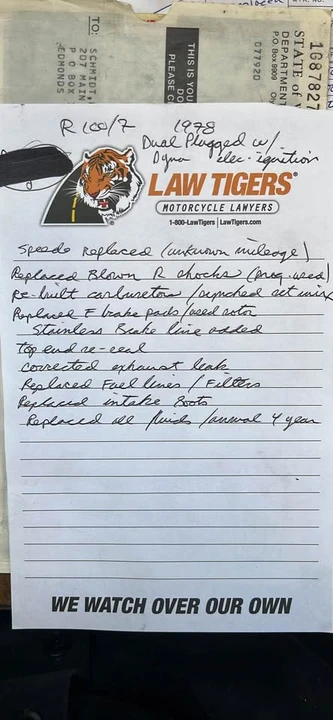 1G87827
STATE of
DEPARTMEN
P.O. Box 9909 Oly
077920
THIS IS YOU
DO
PLEASE C
TO:
SCHMIDT,
207 MAIN
P O BOX
EDMONDS
R 100/7 1978
Dual Plugged w/
Dyna elec. ignition
LAW TIGERS®
MOTORCYCLE LAWYERS
1-800-LawTigers | LawTigers.com
Speedo Replaced (unknown mileage)
Replaced Blown R shocks (prog. used)
Re-built carburetors / synched set mix
Replaced F brake pads / used rotor
Stainless Brake line added
top end re-seal
corrected exhaust leak
Replaced Fuel lines / Filters
Replaced intake Boots
Replaced all fluids / annual 4 year
WE WATCH OVER OUR OWN